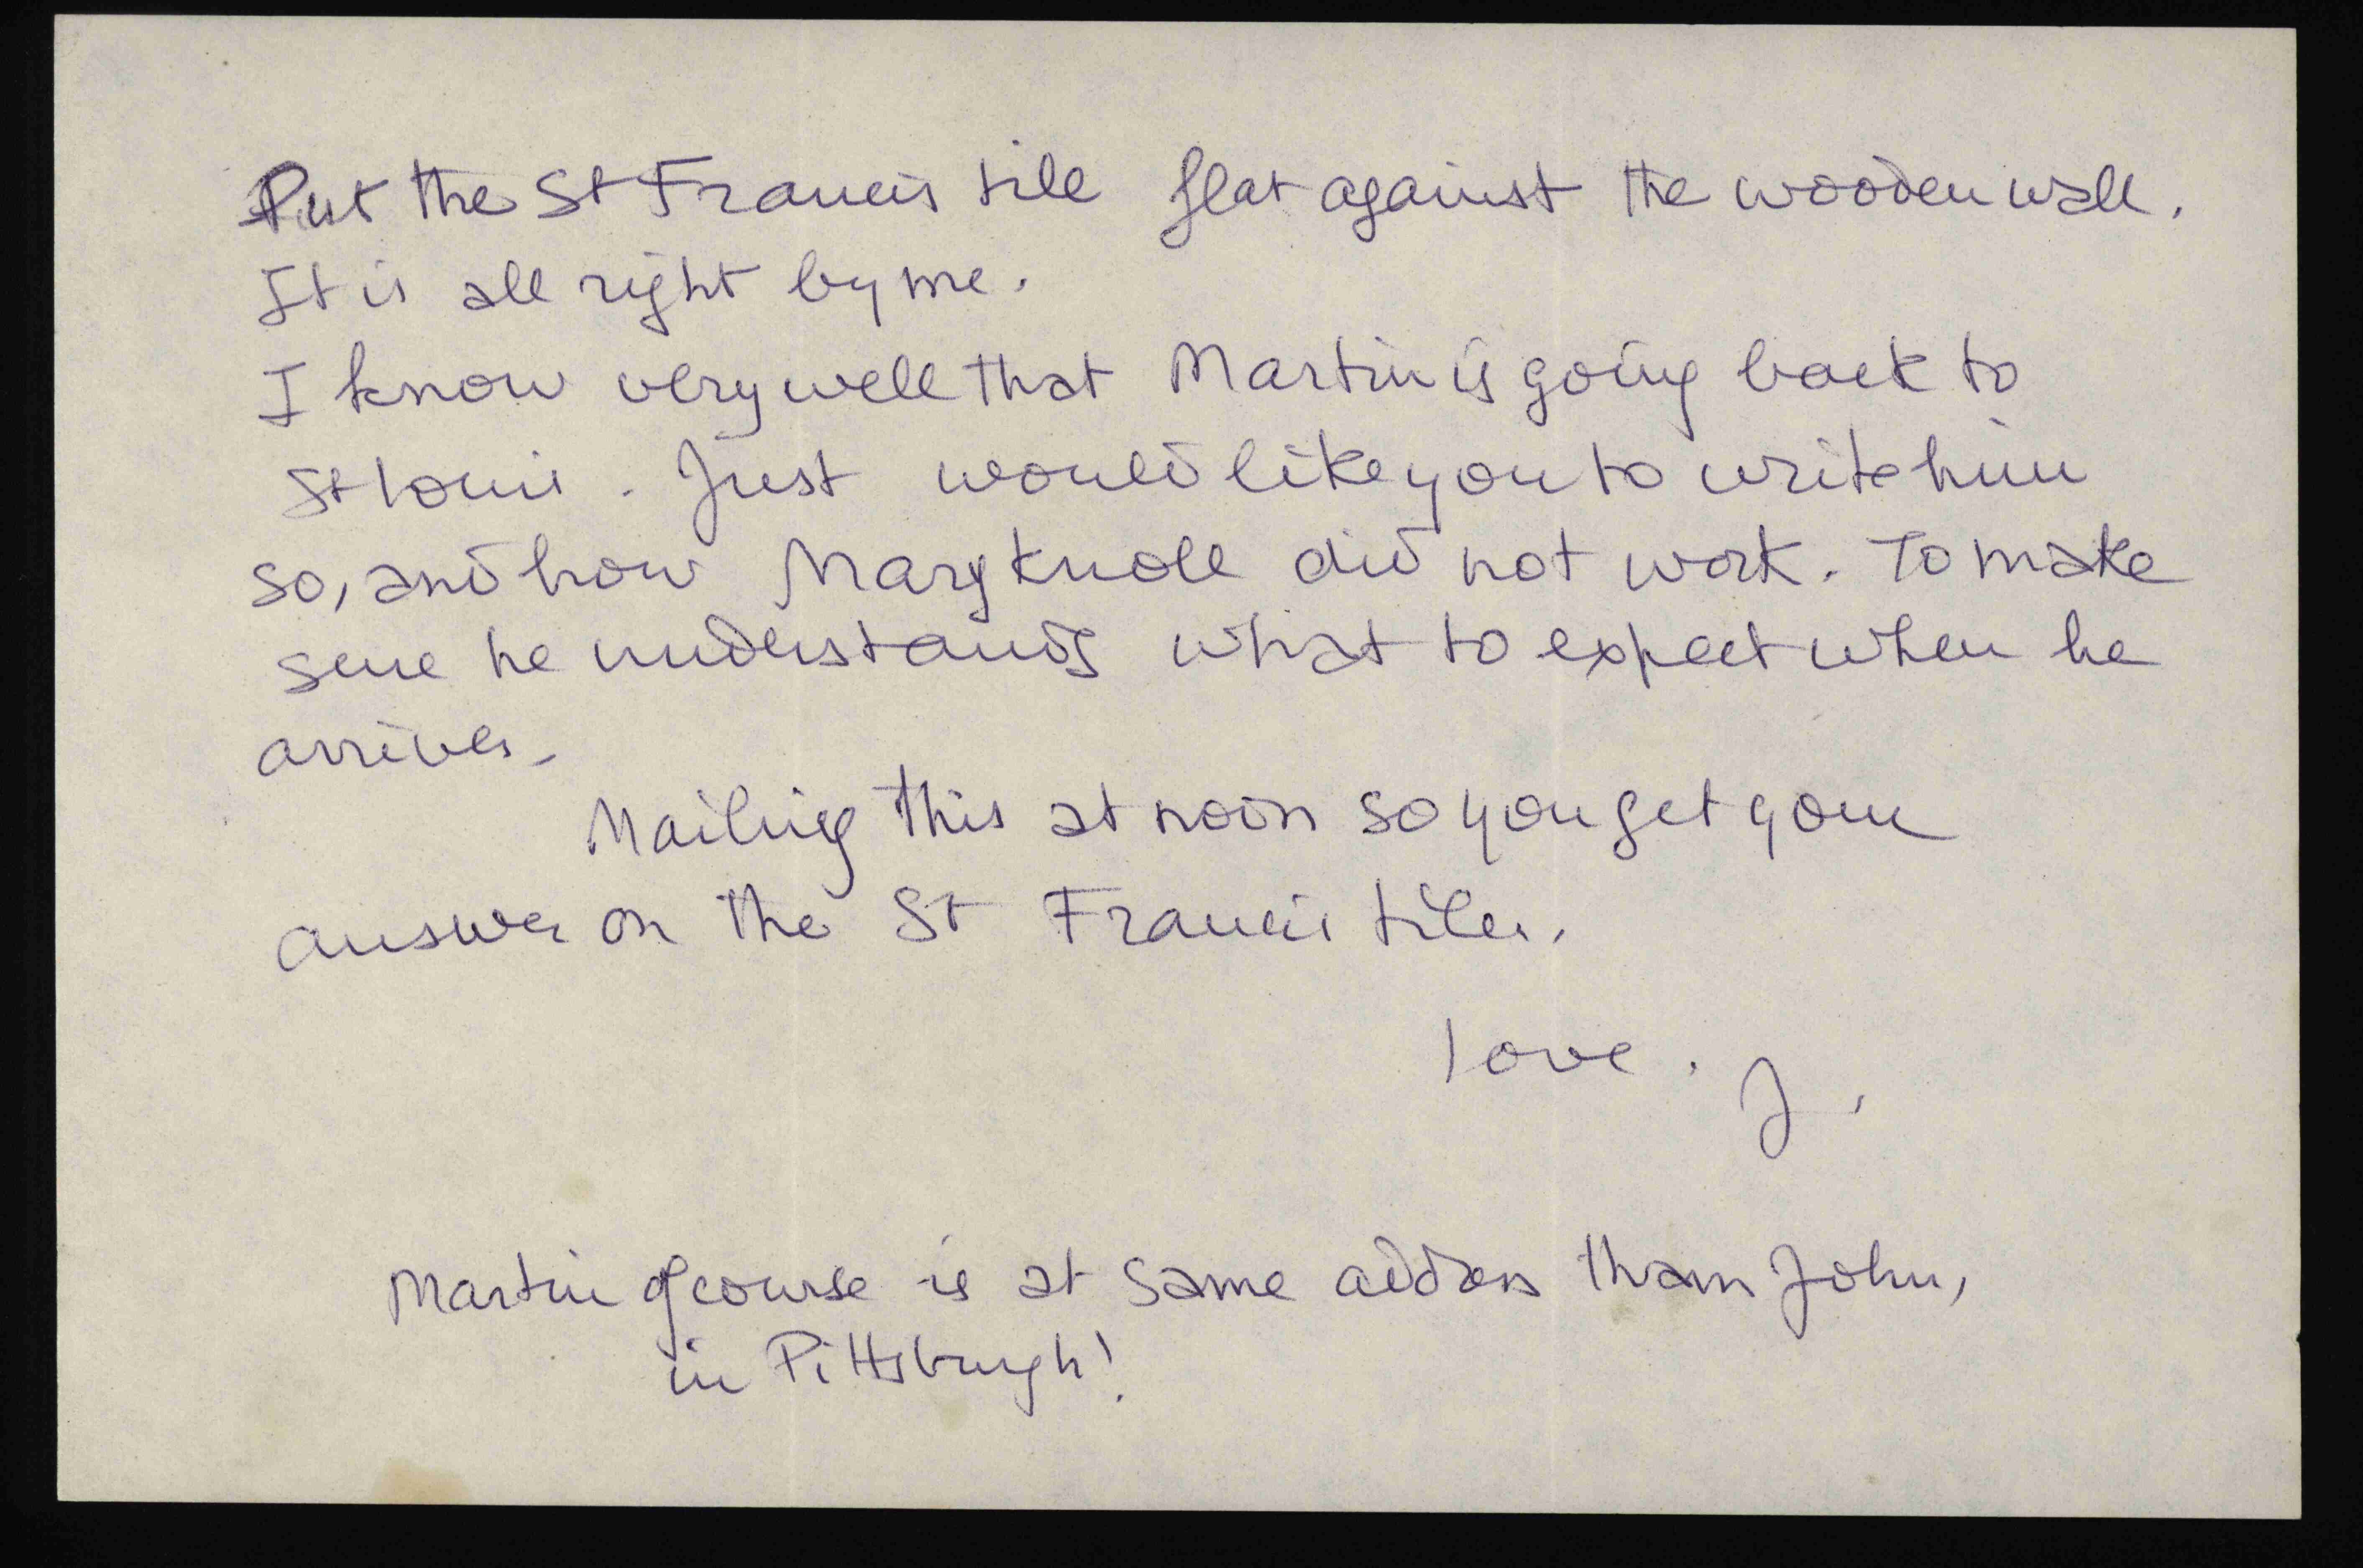 Put the St Francis tile flat against the wooden wall.
It is all right by me.
I know very well that Martin is going back to
St Louis. Just would like you to write him
so, and how Maryknoll did not work. To make
sure he understands what to expect when he
arrives.
Mailing this at noon so you get your
answer on the St Francis tiles.
love. J.
Martin of course is at same address than John,
in Pittsburgh!